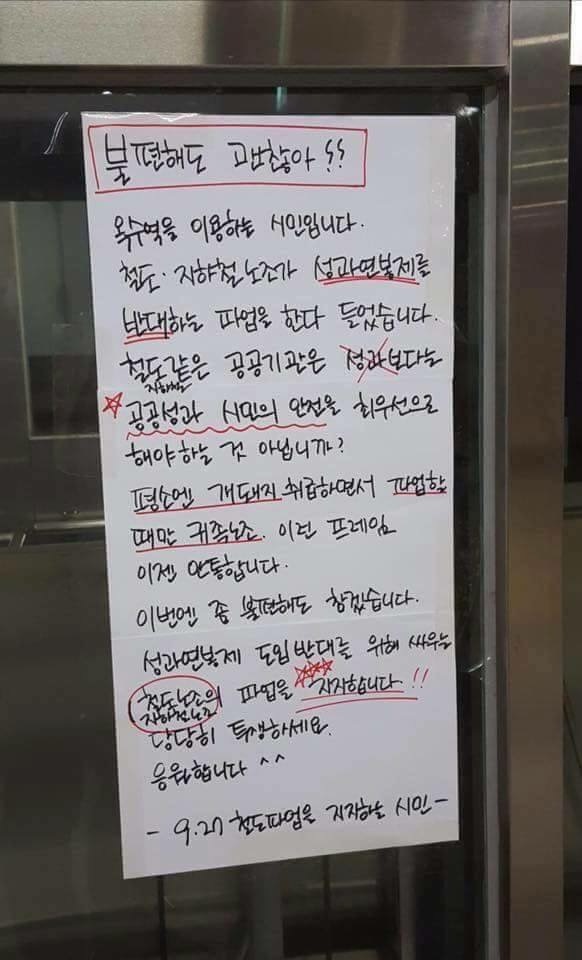 불편해도 괜찮아!!
옥수역을 이용하는 시민입니다.
철도·지하철노조가 성과연봉제를
반대하는 파업을 한다 들었습니다.
철도같은 공공기관은 성과보다는
지하철
☆ 공공성과 시민의 안전을 최우선으로
해야하는 것 아닙니까?
평소엔 개돼지 취급하면서 파업할
때만 귀족노조. 이런 프레임
이젠 안통합니다.
이번엔 좀 불편해도 참겠습니다.
성과연봉제 도입반대를 위해 싸우는
☆☆☆
철도노조의 파업을 지지합니다!!
지하철노조
당당히 투쟁하세요.
응원합니다 ^^
- 9.27 철도파업을 지지하는 시민 -